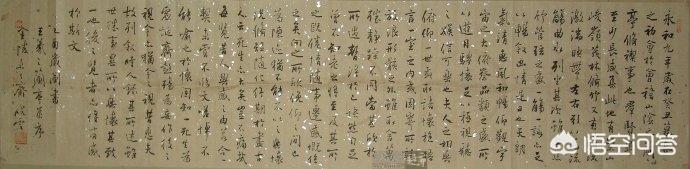 永和九年歲在癸丑暮春
之初會於會稽山陰之蘭
亭脩禊事也群賢畢
至少長咸集此地有崇山
峻嶺茂林脩竹又有清流
激湍映帶左右引以為流
觴曲水列坐其次雖無絲
竹管絃之盛一觴一詠亦足
以暢敘幽情是日也天朗
氣清惠風和暢仰觀宇
宙之大俯察品類之盛所
以遊目騁懷足以極視聽
之娛信可樂也夫人之相與
俯仰一世或取諸懷抱悟
言一室之內或因寄所託
放浪形骸之外雖取舍萬
殊靜躁不同當其欣於
所遇暫得於己快然自足
曾不知老之將至及其所
之既倦情隨事遷感慨係
之矣向之所欣俛仰之間已
為陳迹猶不能不以之興懷
況脩短隨化終期於盡古人
云死生亦大矣豈不痛哉
每覽昔人興感之由若合一
契未嘗不臨文嗟悼不
能喻之於懷固知一死生為
虛誕齊彭殤為妄作後之
視今亦猶今之視昔悲夫
故列敘時人錄其所述雖
世殊事異所以興懷其致
一也後之覽者亦將有感
於斯文
乙酉歲書
王羲之蘭亭序
金陵
悟空问答